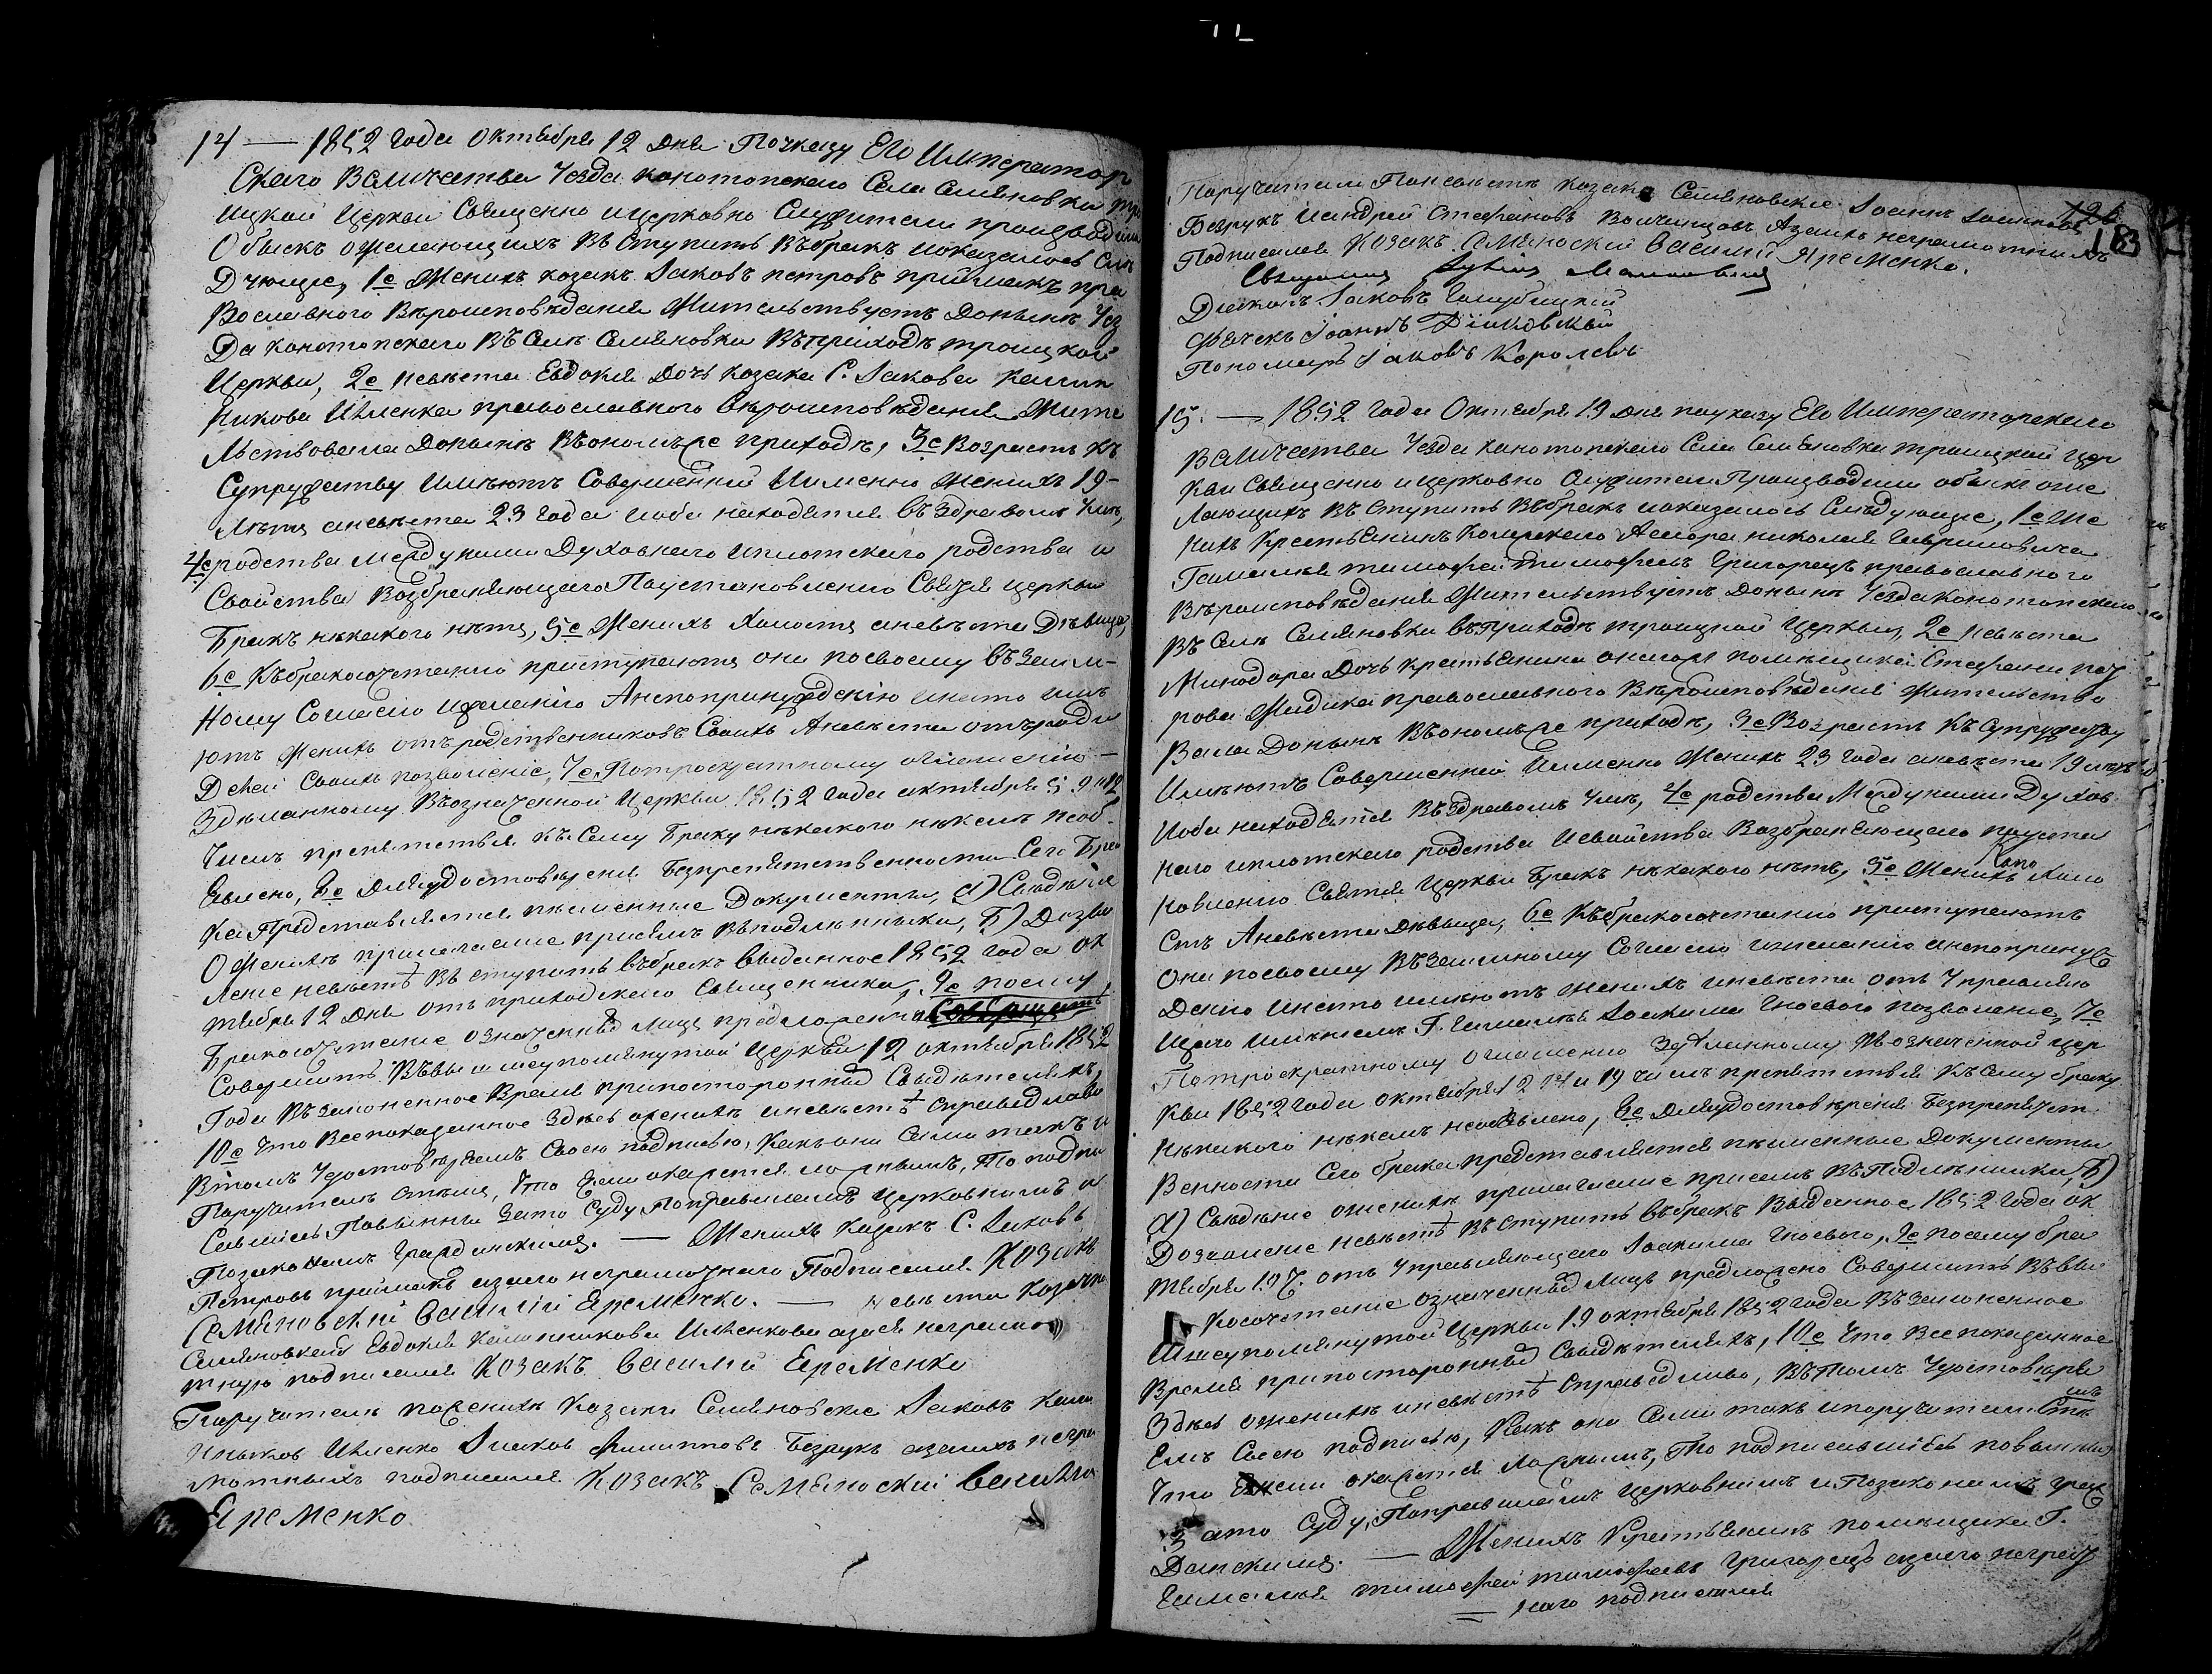 14 — 1852 года Октября 12 дня По указу Его Император
Скаго Величества Уезда конотопскаго Села Семяновки тро
ицкой Церкви Священно ицерковно Служители производили
Обыскъ ожелающихъ въ ступить въбракъ ипоказалось слѣ
Дующие, 1е Женихъ козакъ Іаковъ петровъ приймакъ пра
Вославного Вѣроисповѣданія Жительствуетъ Донынѣ Уез
Да конотопскаго въ Селѣ Семяновки въ приходѣ троицкой
Церкви, 2е невѣста Евдокия дочь козака С. Іакова Калин
никова Ивленка православного вѣроисповѣданія Жите
льствовала Донынѣ въ ономъже приходѣ, 3е Возрастъ къ
Супружеству Имѣютъ Совершенній Именно Женихъ 19-
лѣтъ аневѣста 23 года иоба находятся въздравомъ умѣ,
4е родства между ними Духовнаго иплотскаго родства и
Свойства Возбраняющаго По установлению Святія церкви
Бракъ нѣкакого нѣтъ, 5е Женихъ холостъ аневѣста Дѣвица,
6е Къ бракосочетанию приступаютъ они посвоему въ заим-
ному Согласію ижеланію Анепопринуждению инато имѣ
ютъ Женихъ отъ родственниковъ Своихъ Аневѣста отъ роди
Делей Своихъ позволеніе, 7е. Потроекратному оглашению —
Здѣланному въозначенной Церкви 1852 года октября 5 9 и 12
Числъ препятствія къ Сему Браку нѣкакого нѣкемъ необ-
явлено, 8е Для удостовѣрения Безпрепятственности Сего Бра
ка Представляется писменные Документы, а) Свѣдѣніе
О Женихѣ прилагаемые присемъ въ подлѣнныки, Б) Дозво
ление невѣстѣ въ ступить въбракъ выданное 1852 года ок
тября 12 дня отъ приходскаго Священника, 9е посему
Бракосочетание означенныхъ лицъ предложенно
Совершить въвышеупомянутой церкви 12 октября 1852
Года въ законенное Время припосторонныхъ Свѣдѣтеляхъ,
10е Что Все показанное здѣсь оженихѣ иневѣстѣ справедливо
Втомъ удостовѣряемъ Своею подписью, Какъ они Сами такъ и
Поручители стѣмъ, что Если окажется ложнымъ, то подпи
Савшіесь Повынны зато Суду Поправиламъ церковнымъ и
По законамъ гражданскимъ. — Женихъ казакъ С. Іаковъ
Петровъ приймакъ азаего неграмотнаго Подписался Козакъ
Семяновский Василій Яременко. — невѣста козачка
Семяновская Евдокия Калинникова Ивленкова азаея неграмо
тную подписался Козакъ Василий Яременко
Поручители поженихѣ Козаки Семяновские Іаковъ Кали
никовъ Ивленко Іаковъ Филиповъ Безрукъ азаихъ негра
мотныхъ подписался Козакъ Семяноский Василий
Яременко
126
183
Поручители Поневѣстѣ козаки Семяновские Іоаннъ Іоанновъ
Безрукъ иандрей Стефановъ Азаихъ неграмотныхъ
Подписался Козакъ Семяноский Василий Яременко.
Священникъ
Дияконъ Іаковъ Голубицкій
Дячекъ Іоаннъ
Пономарь Іаковъ Королевъ
15. — 1852 года Октября 19 дня по указу Его Императорскаго
Величества Уезда конотопскаго Села Семяновки троицкой цер
кви Священно ицерковно Служители Производили обыскъ оже
лающихъ въ ступить въбракъ ипоказалось Слѣдующие, 1е Же
нихъ крестьянинъ николая гавриловича
Гамалѣя тимофей тимофеевъ Григорецъ православного
Вѣроисповѣданія Жительствуетъ донынѣ Уезда Конотопскаго
въ Селѣ Семяновки въ приходѣ троицкой Церкви, 2е невѣста
Минодора Дочь крестьянина оногоже помѣщика Стефана наза
рова Жидика православного Вѣроисповѣданія Жительство
вала донынѣ въ ономъже приходѣ, 3е Возрастъ къ Супружеству
Имѣютъ Совершенній Именно Женихъ 23 года аневѣста 19 лѣтъ
Иоба находятся въздравомъ умѣ, 4е родства Между ними Духов
наго иплотскаго родства Исвойства Возбраняющаго поуста
новлению Святія Церкви Бракъ нѣкакого нѣтъ, 5е Женихъ Холо
стъ Аневѣста дѣвица, 6е Къ бракосочетанию приступаютъ
Они посвоему въ заимному Согласию ижеланію анепопринуж
Дению инато имѣютъ Женихъ иневѣста отъ управляю
Щаго имѣнемъ Г. Гамалѣя Іоакима Гноевого позволение, 7е
Потроекратному оглашению Здѣланному въозначенной цер
кви 1852 года октября 12 14 и 19 числъ препятствія къ Сему браку
Нѣкакого нѣкемъ необъявлено, 8е Для удостовѣрения Безпрепятст
Венности Сего брака представляется писменные документы
а) Свѣдѣние оженихѣ прилагаемые присемъ въ Подлѣнныки, Б)
Дозволение невѣстѣ въ ступить въбракъ Выданное 1852 года ок
тября 10 Ч. отъ управляющаго Іоакима Гноевого, 9е посему бра
косочетание означенныхъ лицъ предложено Совершить въвы
шеупомянутой Церкви 19 октября 1852 года въ законенное
Время припосторонныхъ Свѣдѣтеляхъ, 10е Что Все показанное
Здѣсь оженихѣ иневѣстѣ Справедливо, въ томъ удостовѣря
емъ Своею подписью, Какъ они Сами такъ ипоручители стѣмъ
Что Если окажется ложнымъ, То подписавшіесь повынны
зато Суду, Поправиламъ церковнымъ и Позаконамъ граж
Данскимъ. — Женихъ Крестьянинъ помѣщика Г.
Гамалѣя тимофей тимофеевъ Григорецъ азаего неграмот
наго подписался